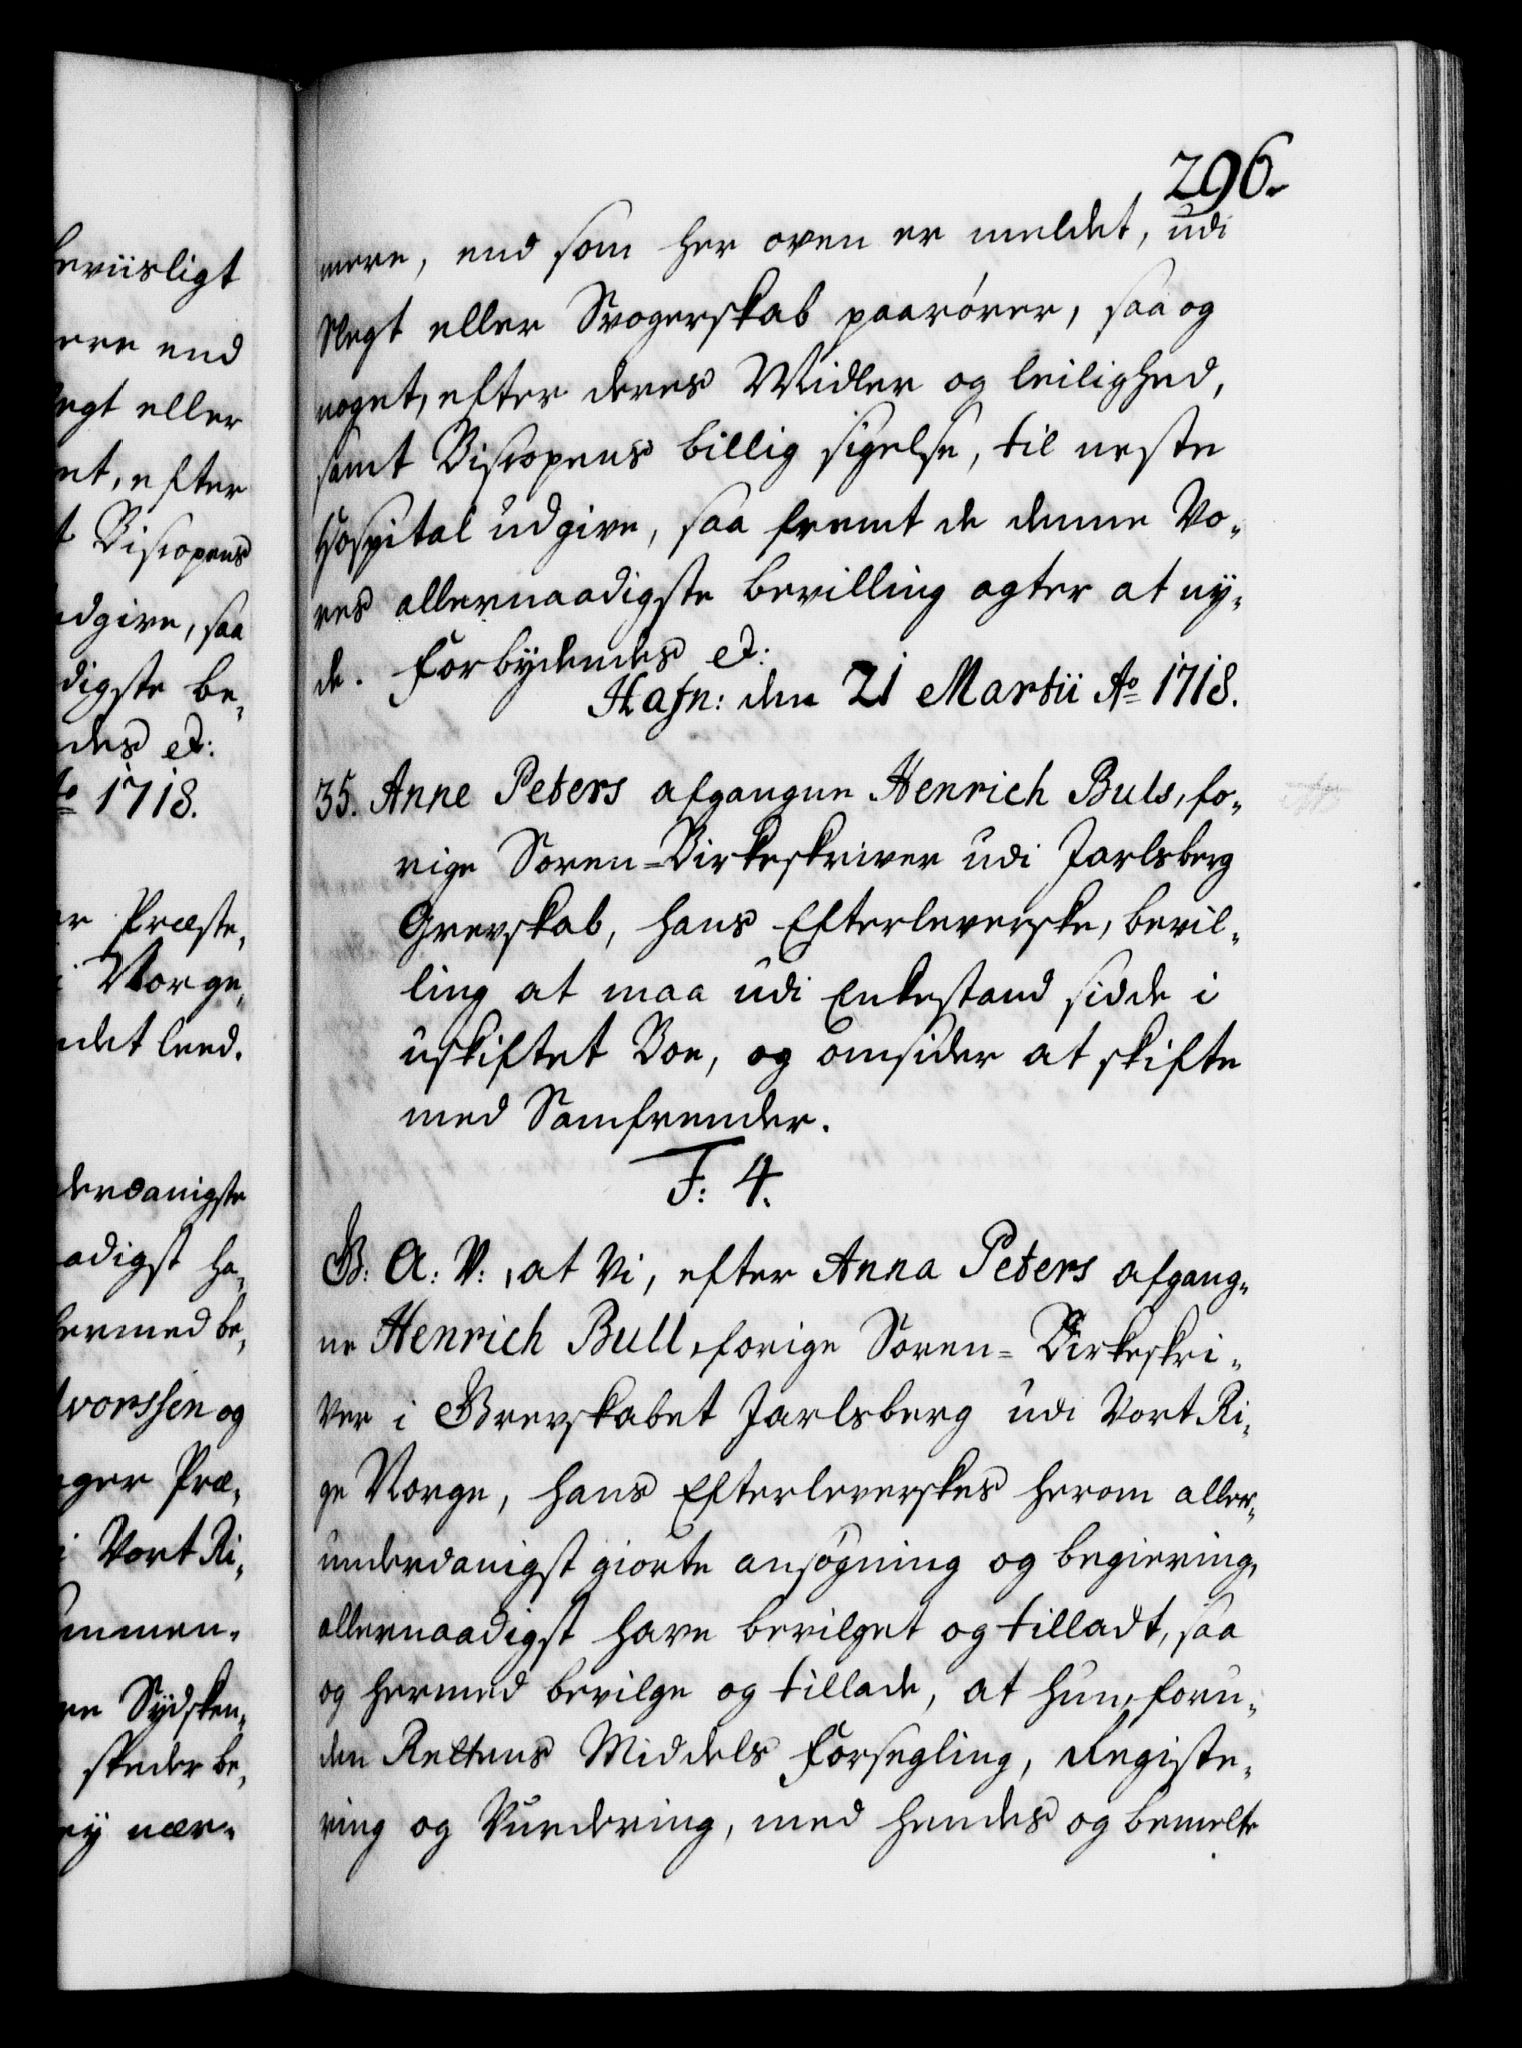 beviisligt
ere end
egt eller
et, efter
t Biscopens
udgive, saa
digste be„
des et:
Ao 1718.
er Præste„
i Norge„
ndet leed.
derdanigste
aadigst ha„
hermed be„
vorssen og
ger Præ„
i Vort Ri„
ammen„
re Sydsken„
skeder be„
ey nær„
296.
mere, end som her oven er meldet, udi
Slegt eller Svogerskab paarörer, saa og
noget, efter deres Midler og leilighed,
samt Biscopens billig sigelse, til neste
Hospital udgive, saa fremt de denne Vo„
res allernaadigste bevilling agter at ny„
de. Forbydendes et:
Hafn: den 21 Martii Ao 1718.
35. Anne Peters afgangne Henrich Buls, fo„
rige Soren=Birkeskriver udi Jarlsberg
Grevskab, hans Efterleverske, bevil„
ling at maa udi Enkestand sidde i
uskiftet Boe, og omsider at skifte
med Samfrender.
F: 4.
G: A: V:, at Vi, efter Anna Peters afgang„
ne Henrich Bull, forige Soren=Birkeskri„
ver i Grevskabet Jarlsberg udi Vort Ri„
ge Norge, hans Efterleverskes herom aller„
underdanigst giorte ansögning og begiering,
allernaadigst have bevilget og tilladt, saa
og hermed bevilge og tillade, at hun, foru„
den Rettens Middels Forsegling, Registe„
ring og Vurdering, med hendes og bemelte